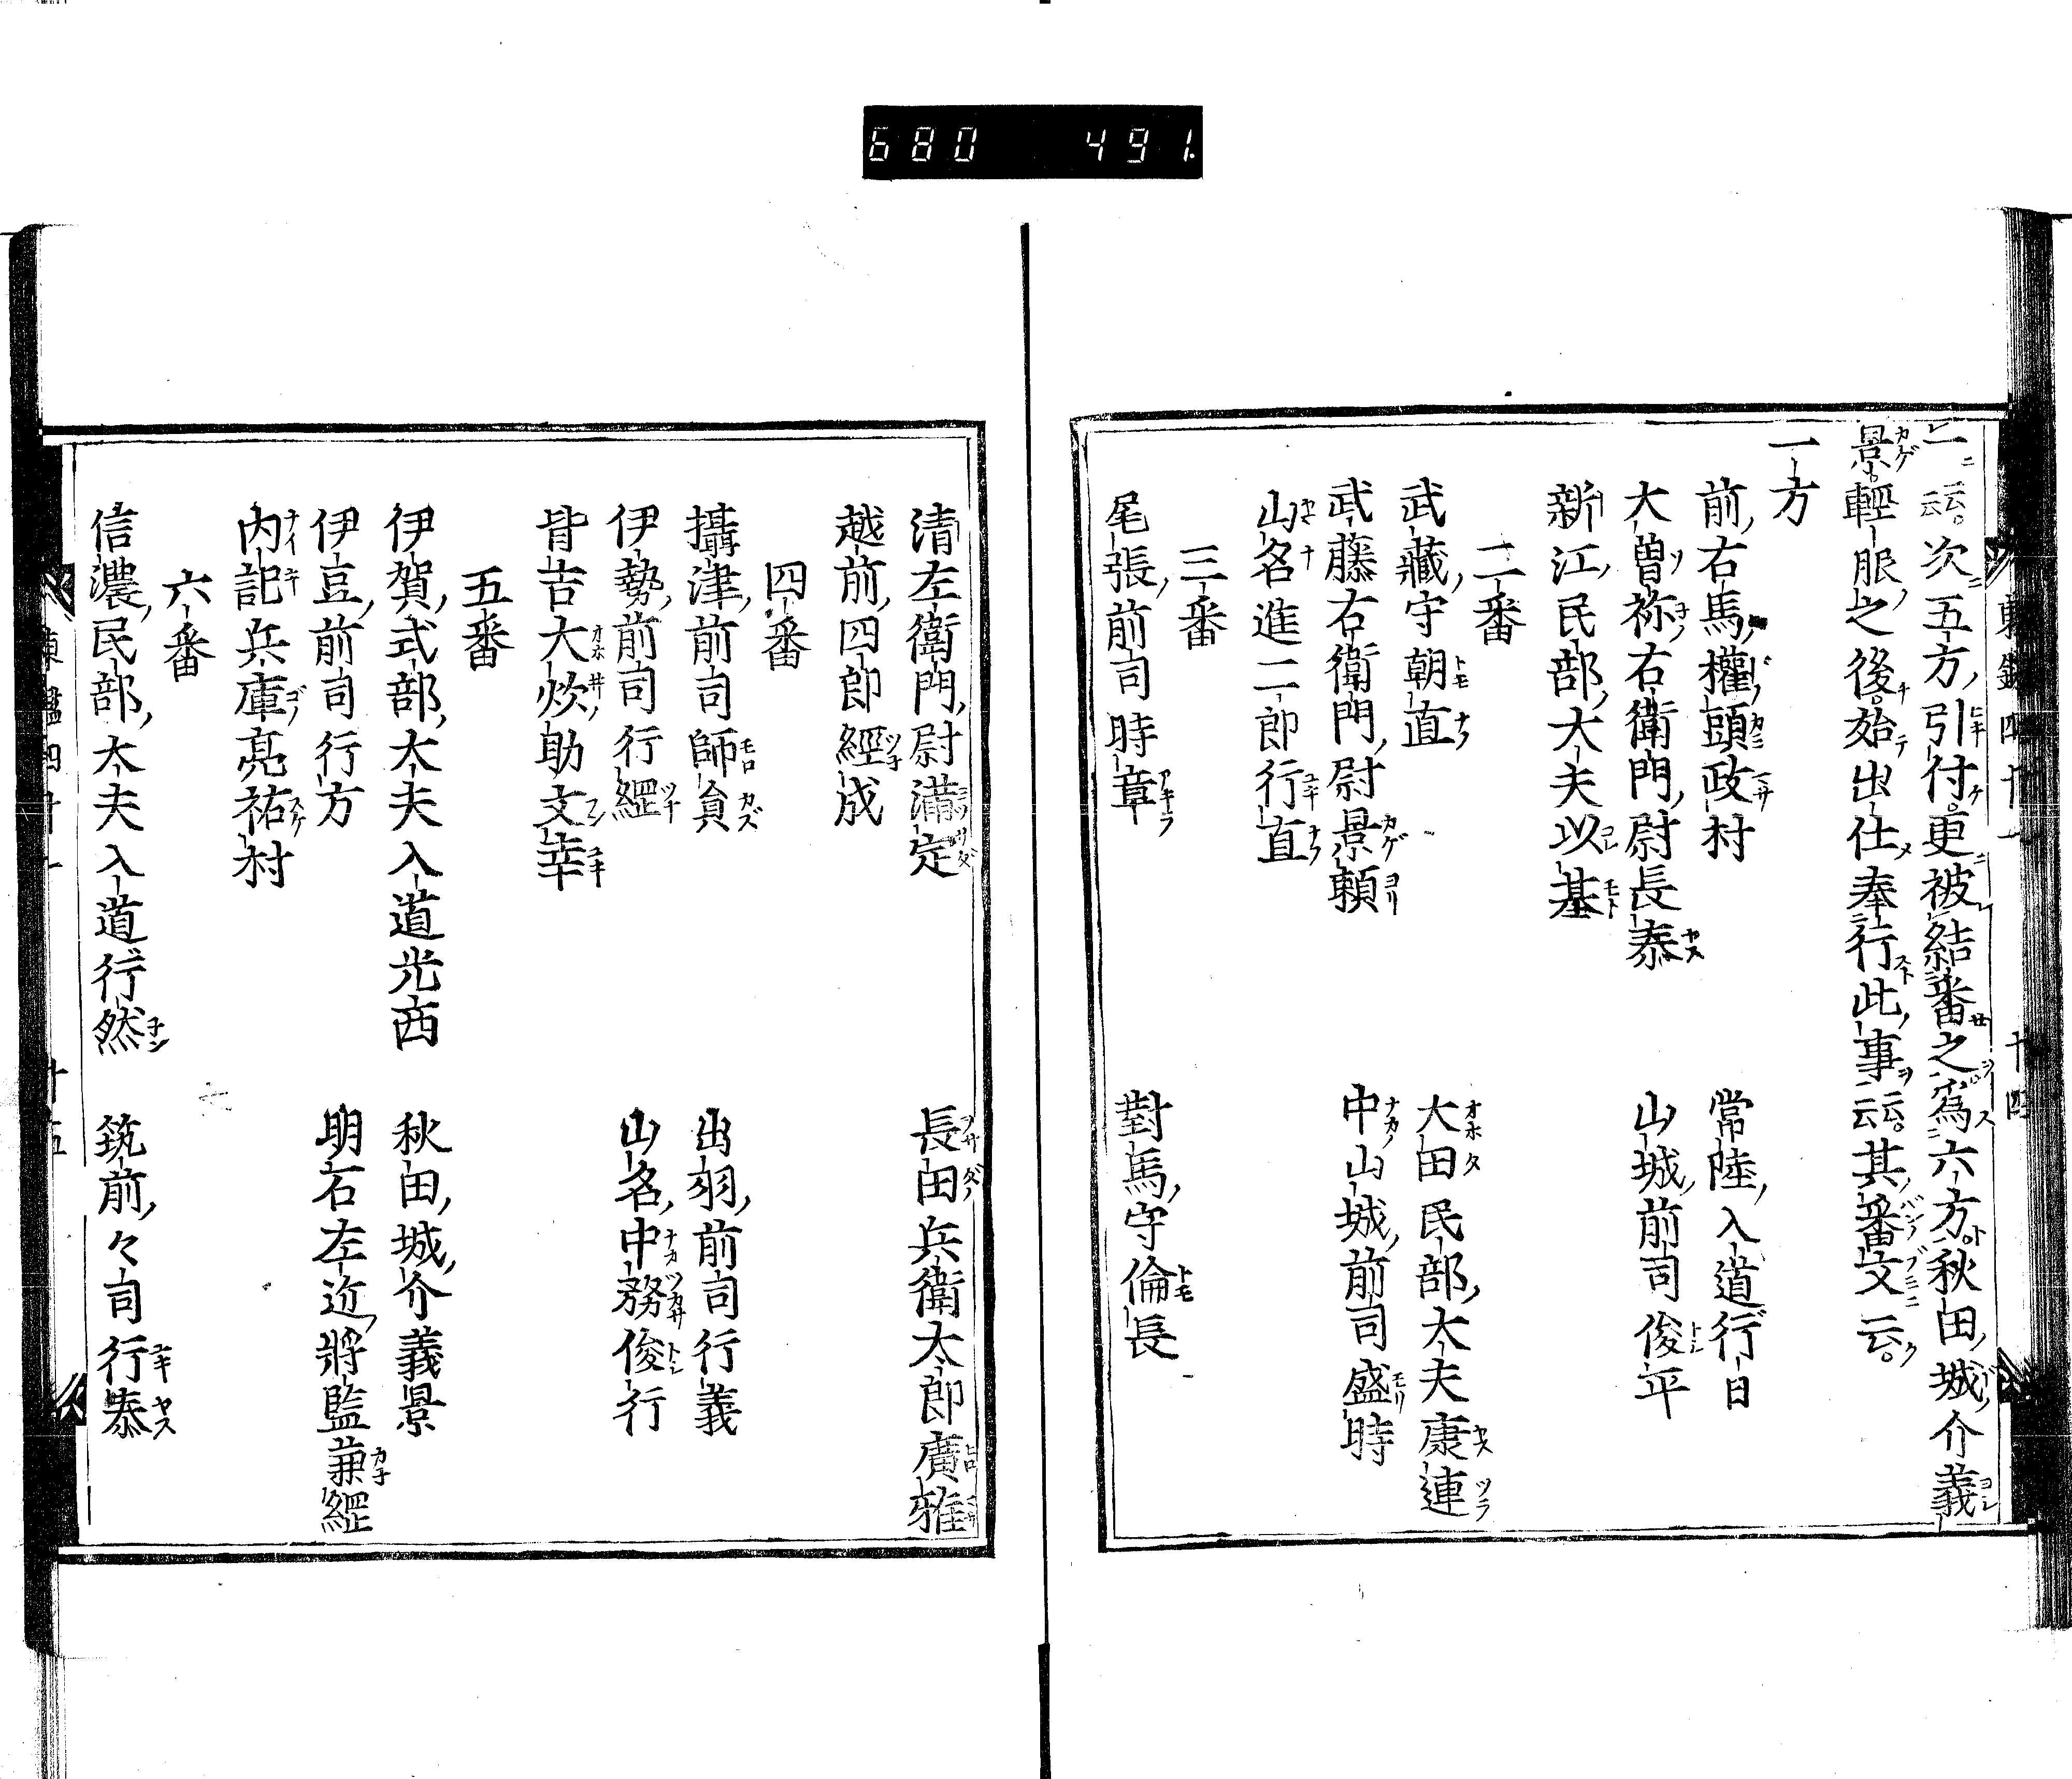 680 491.
一云云。次五方引付更被結番之爲六方秋田城介義
景輕服之後始出仕奉行此事云云。其番文云。
一方
前右馬權頭政村 常陸入道行日
大曽祢右衛門尉長泰 山城前司俊平
新江民部大夫以基
二番
武藏守朝直 大田民部大夫康連
武藤右衛門尉景頼 中山城前司盛時
山名進二郎行直
三番
尾張前司時章 對馬守倫長
清左衛門尉満定 長田兵衛太郎廣雅
越前四郎經成
四番
攝津前司師貟 出羽前司行義
伊勢前司行經 山名中務俊行
皆吉大炊助文幸
五番
伊賀式部太夫入道光西 秋田城介義景
伊豆前司行方 明石左近將監兼經
内記兵庫亮祐村
六番
信濃民部太夫入道行然 筑前々司行泰